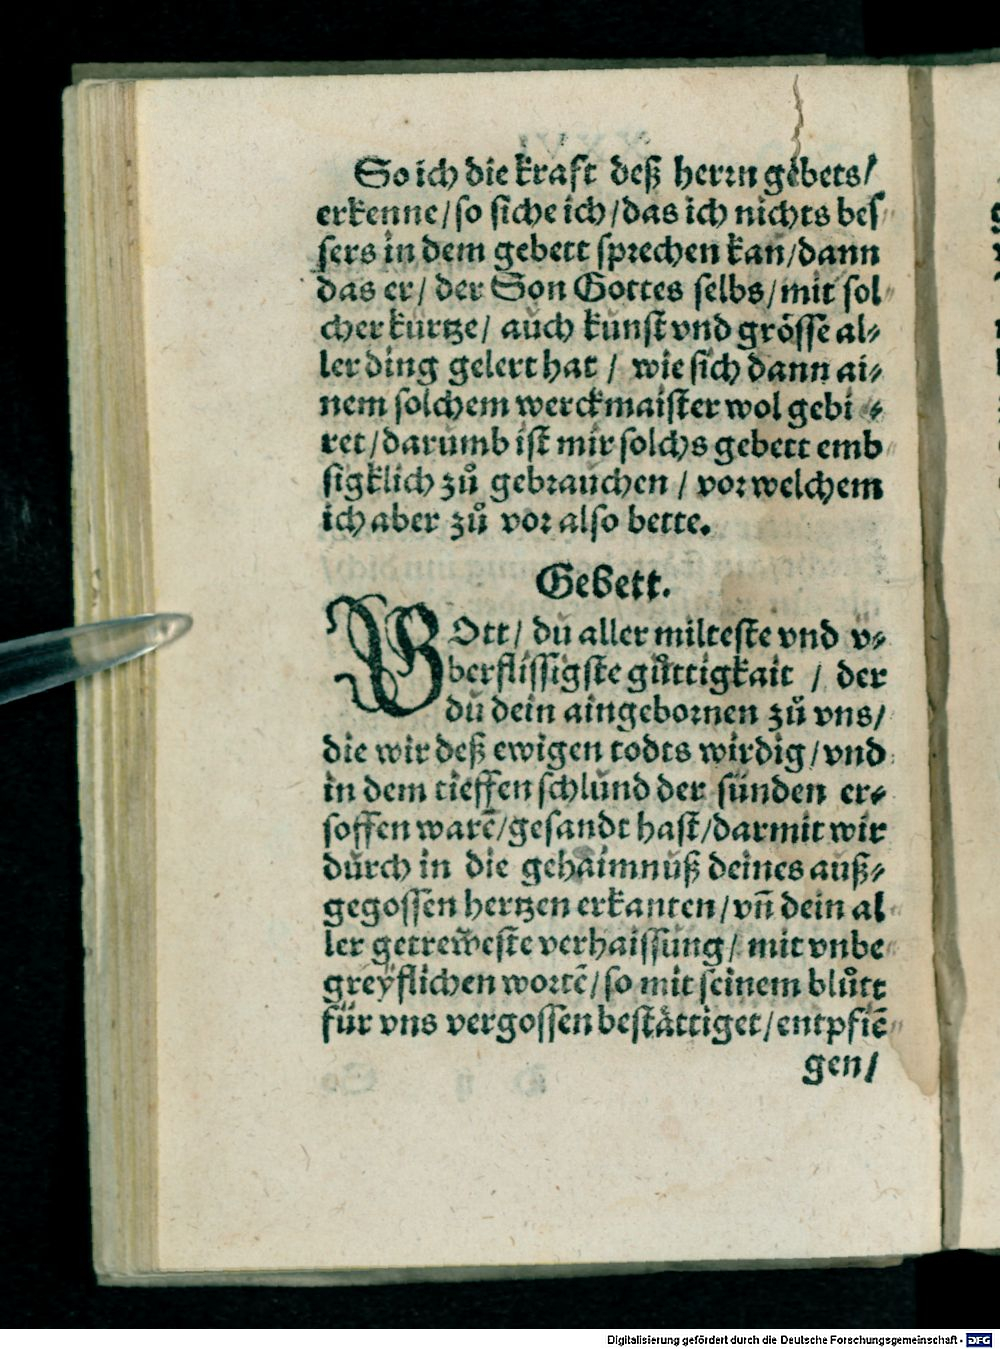 So ich die kraft deß herrn gebets/
erkenne/so siche ich/das ich nichts bes⸗
sers in dem gebett sprechen kan/dann
das er/ der Son Gottes selbs/mit sol⸗
cher kürtze/ auch kunst vnd grösse al⸗
ler ding gelert hat / wie sich dann ai⸗
nem solchem werckmaister wol gebi ⸗
ret/darumb ist mir solchs gebett emb⸗
sigklich zů gebrauchen / vor welchem
ich aber zů vor also bette.
Gebett.
GOtt/ du aller milteste vnd v⸗
berflissigste gůttigkait / der
du dein aingebornen zů vns/
die wir deß ewigen todts wirdig/vnd
in dem tieffen schlund der sünden er⸗
soffen warē/gesandt hast/darmit wir
durch in die gehaimnuß deines auß⸗
gegossen hertzen erkanten/vñ dein al⸗
ler getreweste verhaissung/ mit vnbe⸗
greyflichen wortē/so mit seinem blůtt
für vns vergossen bestättiget/entpfiē⸗
gen/
Digitalisierung gefördert durch die Deutsche Forschungsgemeinschaft - DFG